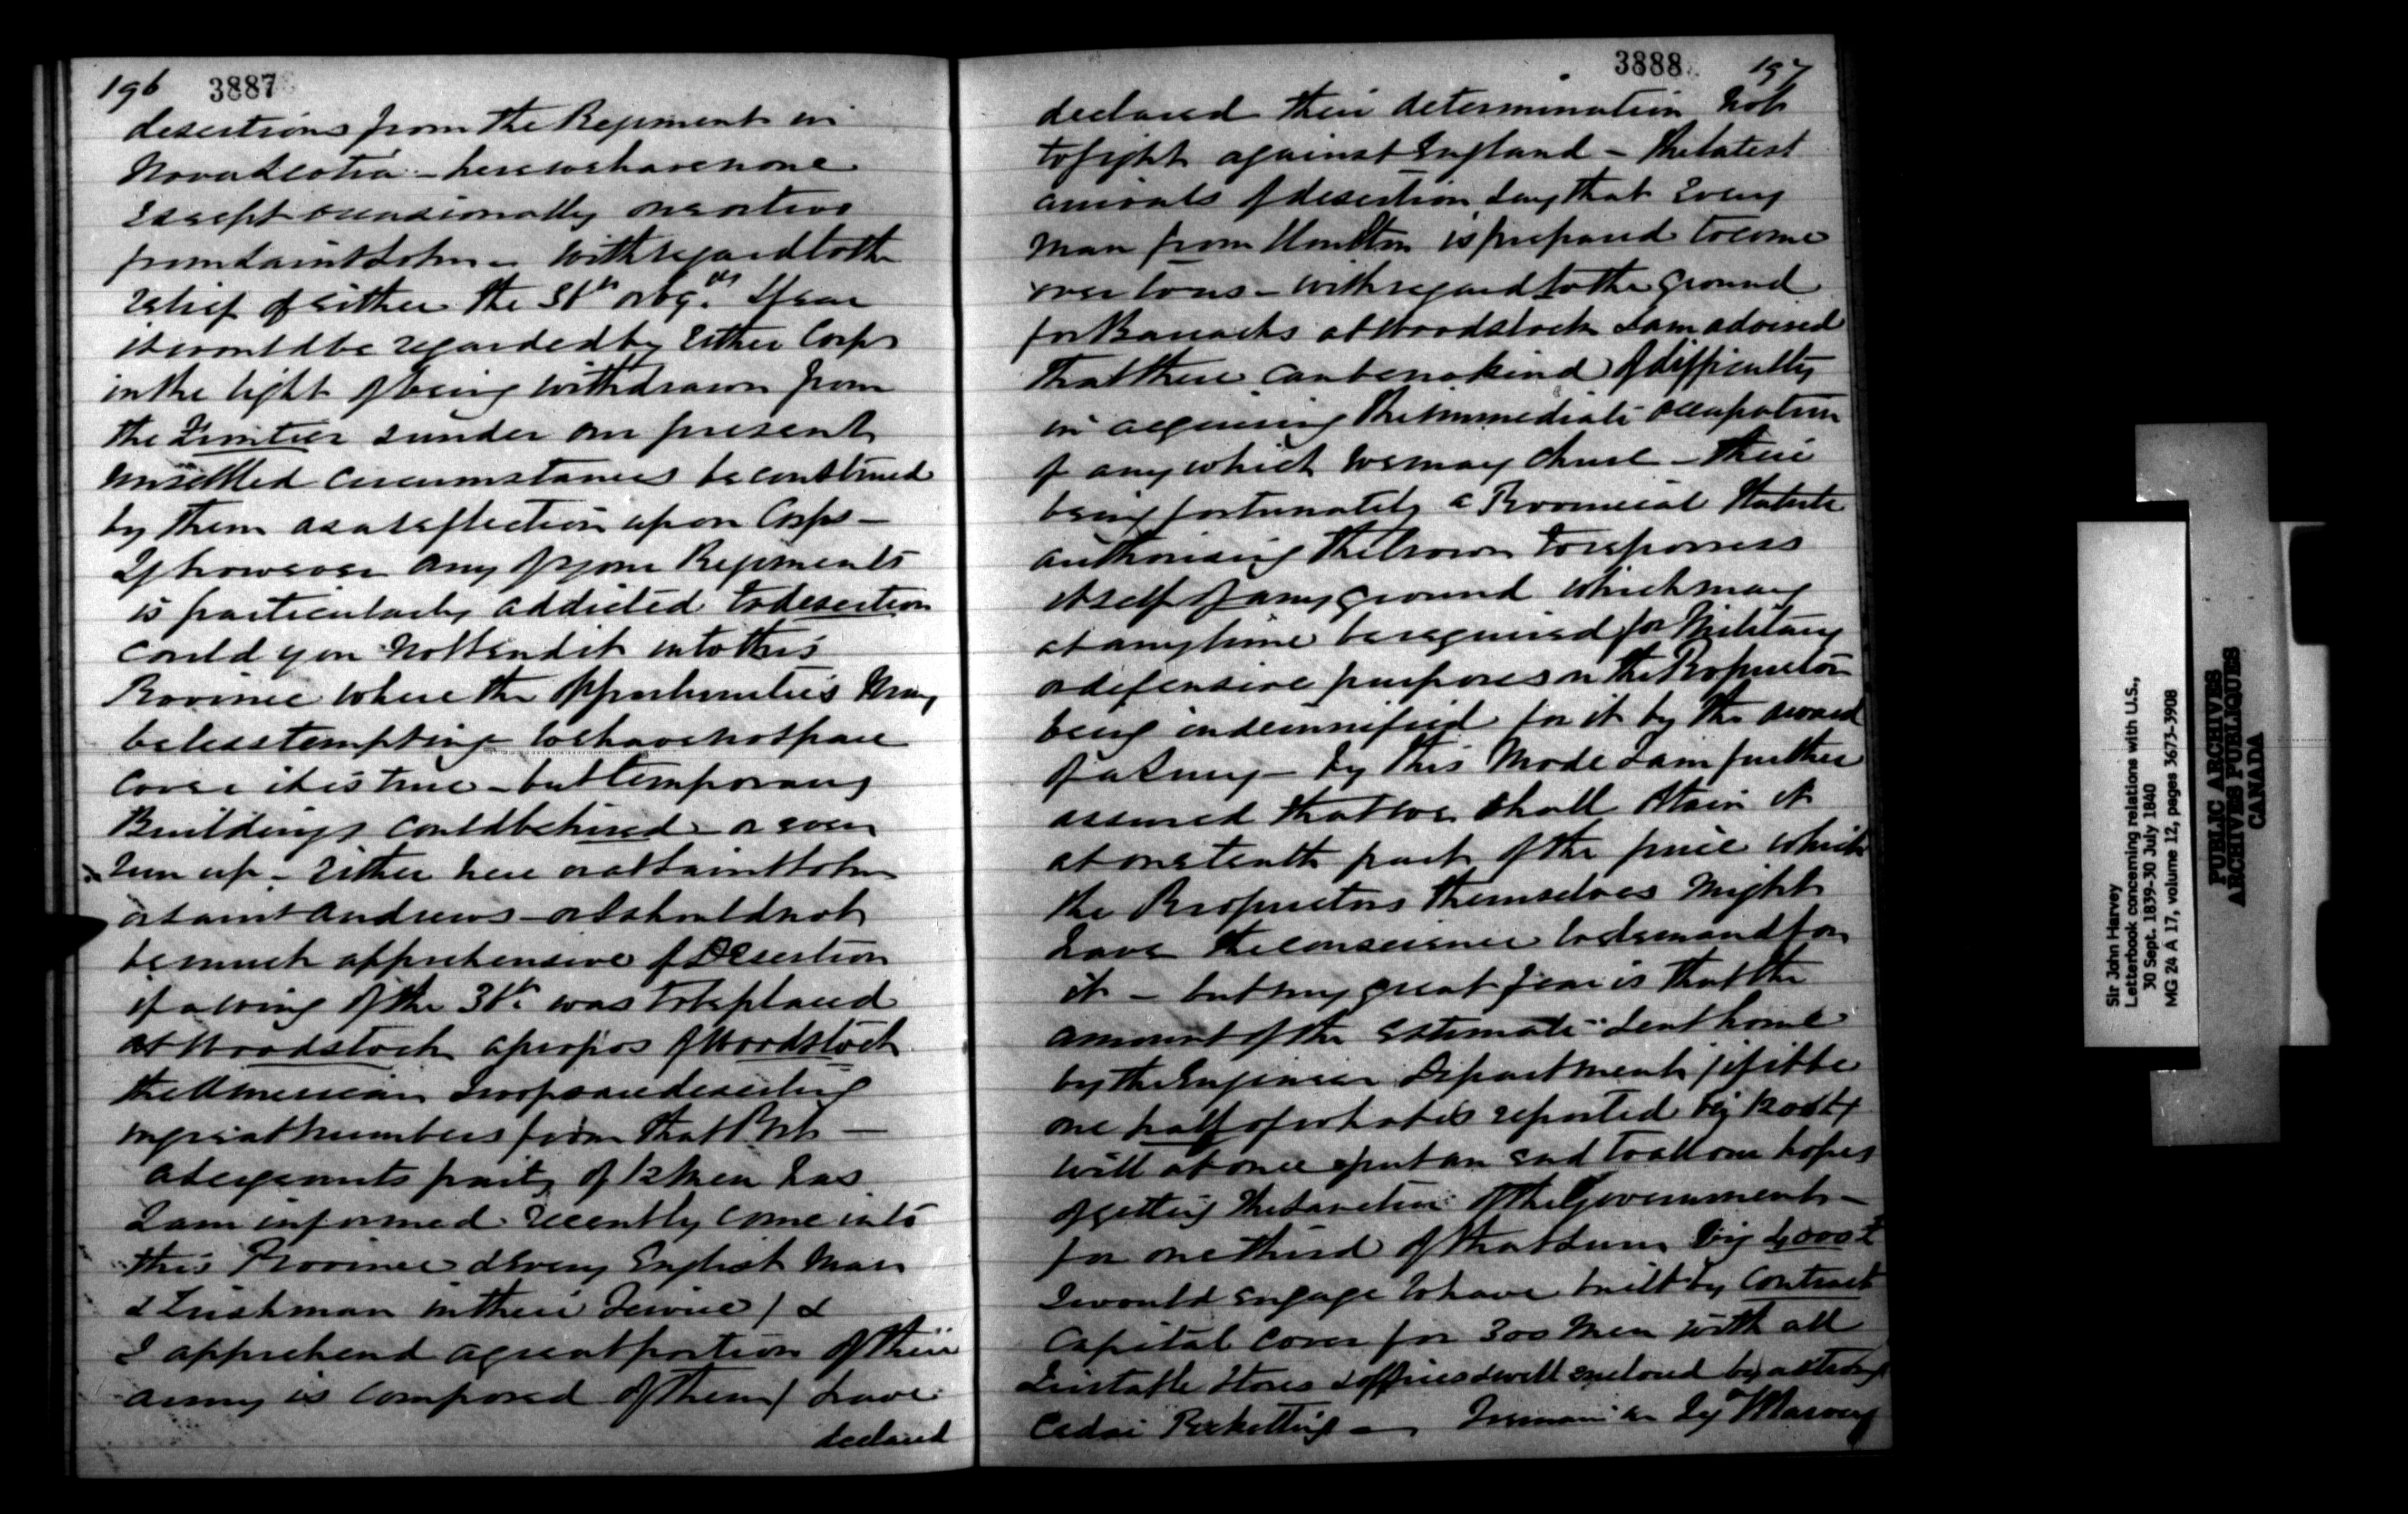 196 3887
desertions from the Regiment in
Nova Scotia - here we have none
Except occasionally one or two
from Saint John - With regard to the
relief of either the 36th or 69th I fear
it would be regarded by either Corps
in the light of being withdrawn from
the Frontier & under our present
unsettled circumstances be construed
by them as a reflection upon Corps -
If however any of your Regiments
is particularly addicted to desertion
could you not send it into this
Province where the opportunities may
be less tempting We have not spare
cover it is true - but temporary
Buildings could be hired - or even
run up - either here or at Saint John
or Saint Andrews - or I should not
be much apprehensive of Desertion
if a wing of the 36th was to be placed
at Woodstock apropos of Woodstock
the American Troops are deserting
in great numbers from that Post -
a Sergeants party of 12 men has
I am informed recently come into
this Province & Every English Man
& Irishman in their Service / &
I apprehend a great portion of their
army is composed of them / have
declared
3888 197
declared their determination not
to fight against England - the latest
arrivals of desertion say that Every
man from Houlton is prepared to come
over to us - with regard to the ground
for Barracks at Woodstock I am advised
that there can be no kind of difficulty
in acquiring the immediate occupation
of any which we may chuse - there
being fortunately a Provincial Statute
authorising the Crown to repossess
itself of any ground which may
at any time be required for Military
or defensive purposes on the Proprietor
being indemnified for it by the award
of a Jury - by this mode I am further
assured that we shall obtain it
at one tenth part of the price which
the Proprietors themselves might
have the conscience to demand for
it - but my great fear is that the
amount of the Estimate sent home
by the Engineer Department / if it be
one half of what is reported viz 12000£
will at once put an end to all our hopes
of getting the Sanction of the Government -
for one third of that Sum viz 4,000£
I would engage to have built by Contract
Capital cover for 300 Men with all
Suitable Stores & offices & well enclosed by a strong
Cedar Picketting - I remain &c Sgd J Harvey
Sir John Harvey
Letterbook concerning relations with U.S.,
30 Sept. 1839-30 July 1840
MG 24 A 17, volume 12, pages 3673-3908
PUBLIC ARCHIVES
ARCHIVES PUBLIQUES
CANADA